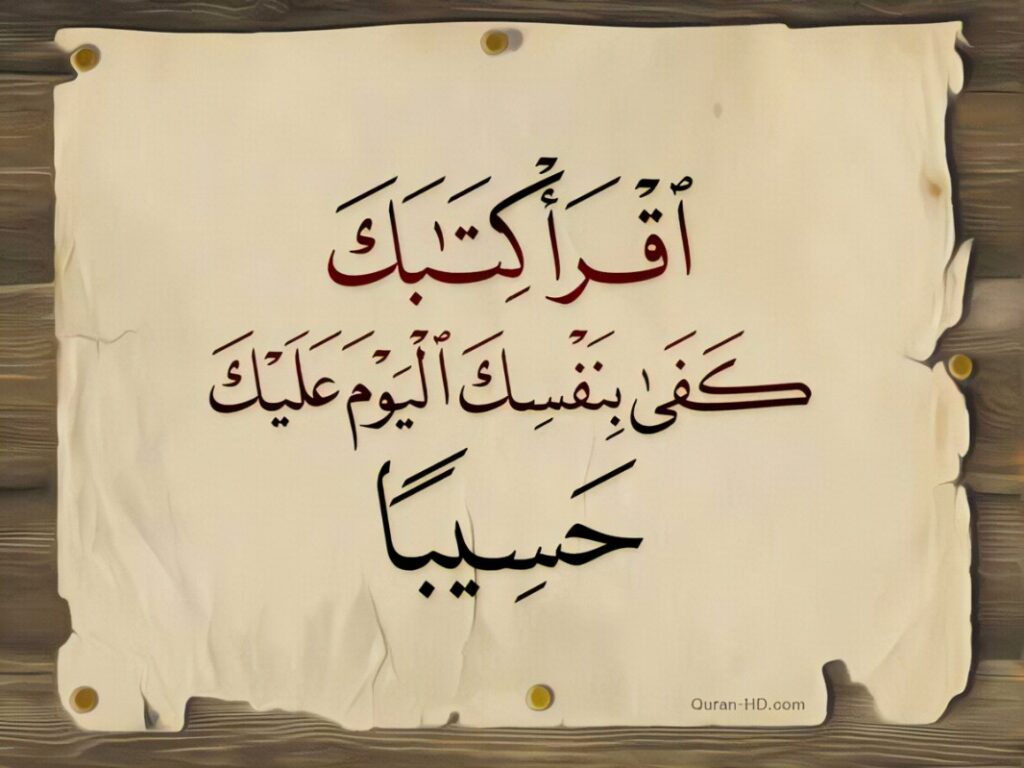 ٱقْرَأْ كِتَـٰبَكَ
كَفَىٰ بِنَفْسِكَ ٱلْيَوْمَ عَلَيْكَ
حَسِيبًا
Quran-HD.com